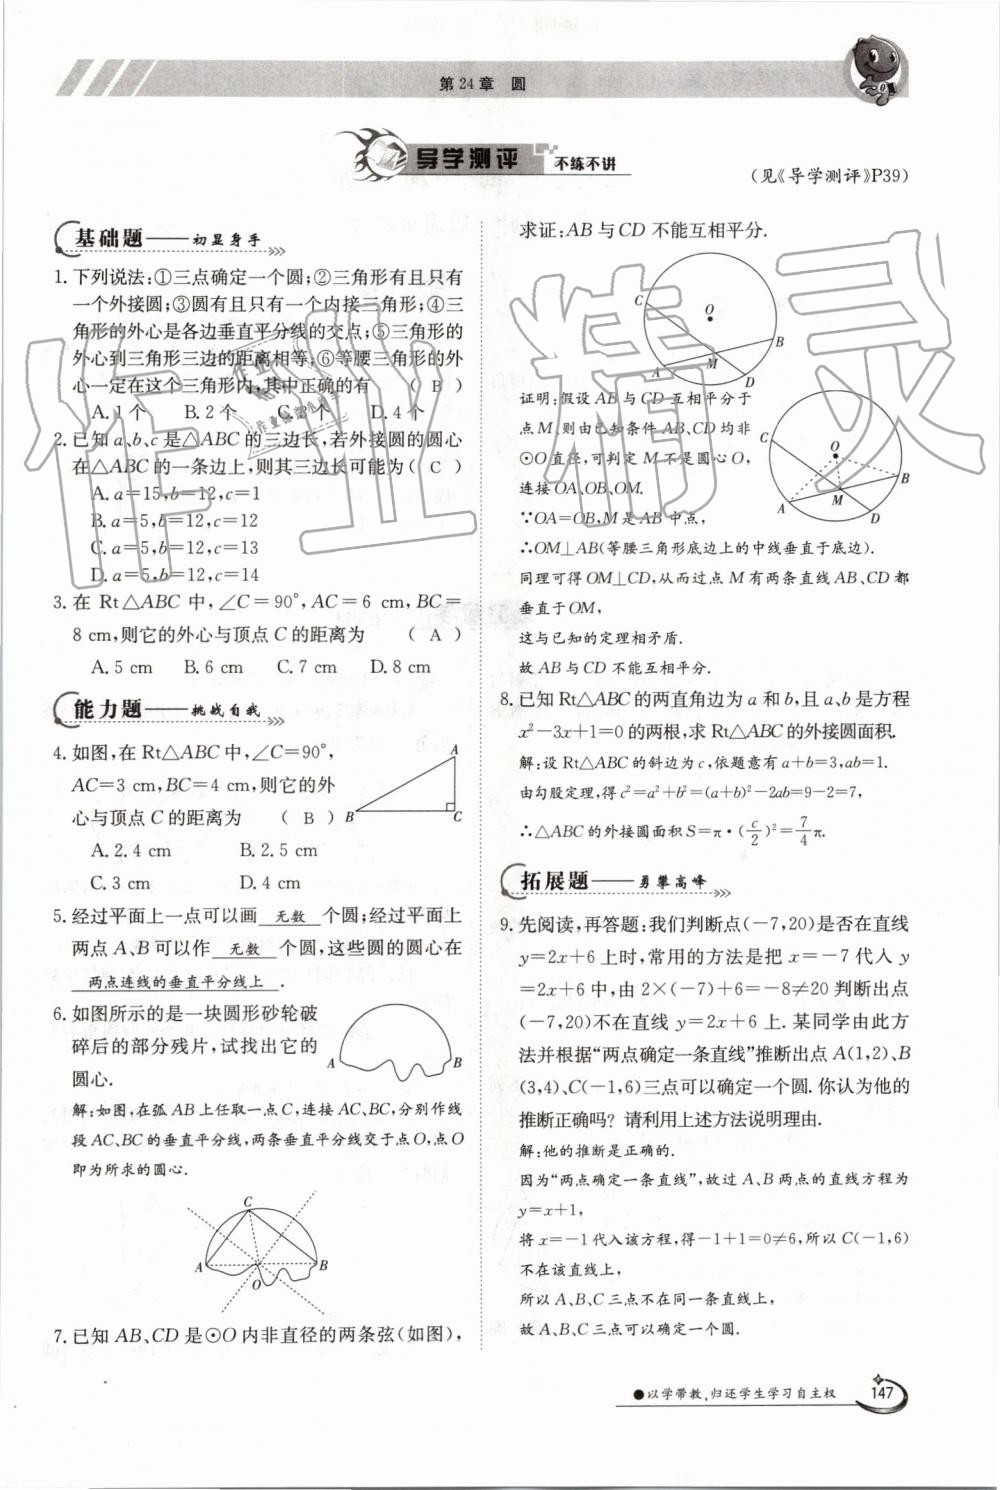 第24章 圆
导学测评 不练不讲
(见《导学测评》P39)
基础题——初显身手
1. 下列说法:①三点确定一个圆;②三角形有且只有
一个外接圆;③圆有且只有一个内接三角形;④三
角形的外心是各边垂直平分线的交点;⑤三角形的
外心到三角形三边的距离相等;⑥等腰三角形的外
心一定在这个三角形内,其中正确的有 ( B )
A. 1个 B. 2个 C. 3个 D. 4个
2. 已知a、b、c是△ABC的三边长,若外接圆的圆心
在△ABC的一条边上,则其三边长可能为( C )
A. a=15,b=12,c=1
B. a=5,b=12,c=12
C. a=5,b=12,c=13
D. a=5,b=12,c=14
3. 在 Rt△ABC 中,∠C=90°,AC=6 cm,BC=
8 cm,则它的外心与顶点 C 的距离为 ( A )
A. 5 cm B. 6 cm C. 7 cm D. 8 cm
能力题——挑战自我
4. 如图,在 Rt△ABC 中,∠C=90°,
AC=3 cm,BC=4 cm,则它的外
心与顶点 C 的距离为 ( B )
A. 2.4 cm B. 2.5 cm
C. 3 cm D. 4 cm
A
B
C
5. 经过平面上一点可以画 无数 个圆;经过平面上
两点 A、B 可以作 无数 个圆,这些圆的圆心在
两点连线的垂直平分线上 .
6. 如图所示的是一块圆形砂轮破
碎后的部分残片,试找出它的
圆心.
A
B
解:如图,在弧 AB 上任取一点 C,连接 AC、BC,分别作线
段 AC、BC 的垂直平分线,两条垂直平分线交于点 O,点 O
即为所求的圆心.
C
A
O
B
7. 已知 AB、CD 是⊙O 内非直径的两条弦(如图),
求证:AB 与 CD 不能互相平分.
C
O
B
A
M
D
证明:假设 AB 与 CD 互相平分于
点 M,则由已知条件 AB、CD 均非
⊙O 直径,可判定 M 不是圆心 O,
连接 OA、OB、OM.
∵OA=OB,M 是 AB 中点,
∴OM⊥AB(等腰三角形底边上的中线垂直于底边).
C
O
B
A
M
D
同理可得 OM⊥CD,从而过点 M 有两条直线 AB、CD 都
垂直于 OM,
这与已知的定理相矛盾.
故 AB 与 CD 不能互相平分.
8. 已知 Rt△ABC 的两直角边为 a 和 b,且 a、b 是方程
x²−3x+1=0 的两根,求 Rt△ABC 的外接圆面积.
解:设 Rt△ABC 的斜边为 c,依题意有 a+b=3,ab=1.
由勾股定理,得 c²=a²+b²=(a+b)²−2ab=9−2=7,
∴△ABC 的外接圆面积 S=π·(c/2)²=7/4π.
拓展题——勇攀高峰
9. 先阅读,再答题:我们判断点(−7,20)是否在直线
y=2x+6 上时,常用的方法是把 x=−7 代入 y
=2x+6 中,由 2×(−7)+6=−8≠20 判断出点
(−7,20)不在直线 y=2x+6 上. 某同学由此方
法并根据“两点确定一条直线”推断出点 A(1,2)、B
(3,4)、C(−1,6)三点可以确定一个圆. 你认为他的
推断正确吗? 请利用上述方法说明理由.
解:他的推断是正确的.
因为“两点确定一条直线”,故过 A、B 两点的直线方程为
y=x+1,
将 x=−1 代入该方程,得−1+1=0≠6,所以 C(−1,6)
不在该直线上,
所以 A、B、C 三点不在同一条直线上,
故 A、B、C 三点可以确定一个圆.
●以学带教,归还学生学习自主权
147
作业精灵